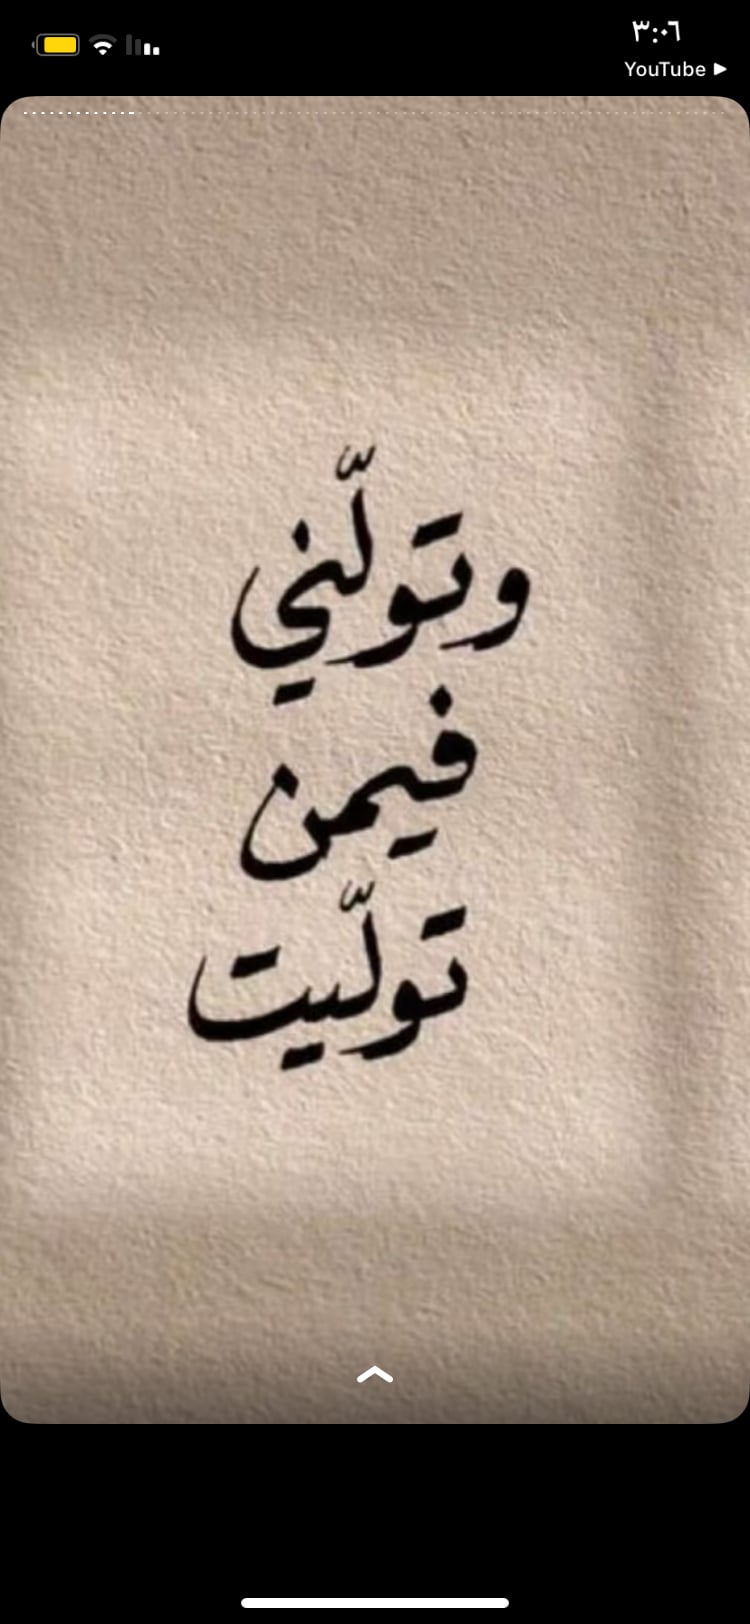 ٣:٠٦
YouTube
وتولّني
فيمن
تولّيت